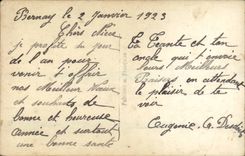 Bernay le 2 Janvier 1923
Chère
je profite du jour
de l'an pour
venir t'offrir
nos Meilleur Vœux
et souhaits de
bonne et heureuse
année et surtout
une bonne santé
Ta Tante et ton
oncle qui t'envoie
leurs Meilleurs
Baisers en attendant
le plaisir de te
voir
Eugenie